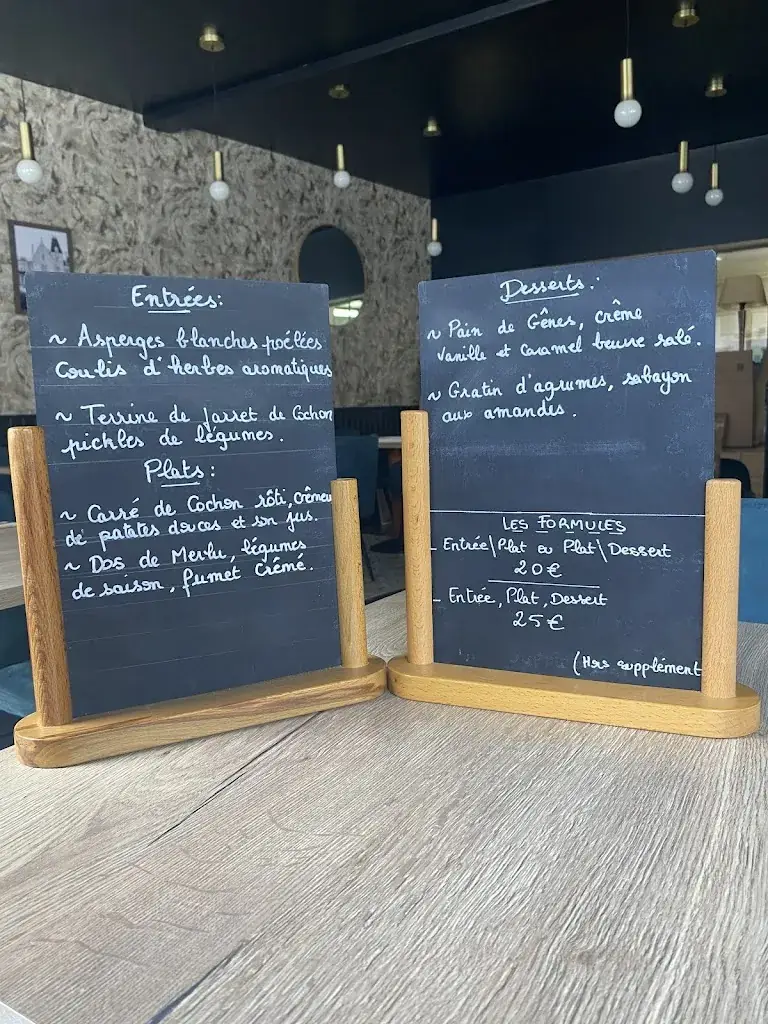 Entrées:
~ Asperges blanches poêlées
Coulis d'herbes aromatiques
~ Terrine de Jarret de Cochon
pickles de légumes.
Plats:
~ Carré de Cochon rôti, crémeu
de patates douces et son jus.
~ Dos de Merlu, légumes
de saison, fumet Crémé.
Desserts:
~ Pain de Gênes, crême
Vanille et Caramel beurre salé.
~ Gratin d'agrumes, sabayon
aux amandes.
LES FORMULES
- Entrée\Plat ou Plat\Dessert
20€
- Entrée, Plat, Dessert
25€
(Hors supplément